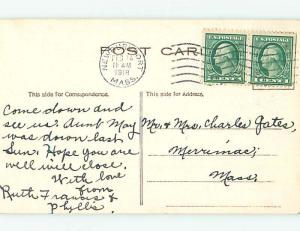 POST CARD
NEWBURYPORT
FEB 14
11 AM
1918
MASS.
U.S. POSTAGE
U.S. POSTAGE
This side for Correspondence.
This side for Address.
Come down and
see us. Aunt May
was down last
Sun. Hope you are
well will close.
With love
from
Ruth Francis &
Phyllis.
Mr. & Mrs. Charles Gates,
Merrimac,
Mass.